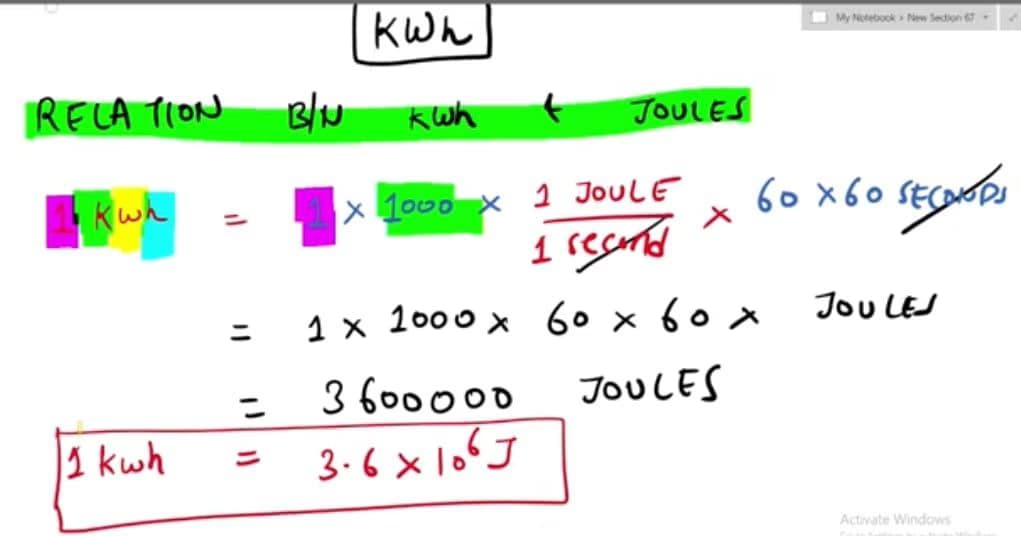 My Notebook > New Section 67
KWh
RELATION B/N kwh & JOULES
1 kwh = 1 × 1000 × 1 JOULE / 1 second × 60 × 60 SECONDS
= 1 × 1000 × 60 × 60 × JOULES
= 3600000 JOULES
1 kwh = 3.6 × 10⁶ J
Activate Windows